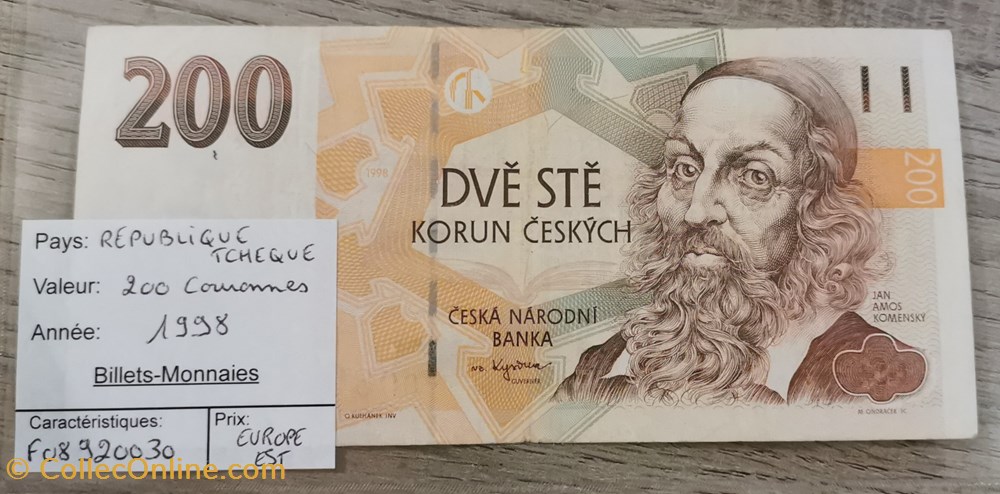 200
1998
DVĚ STĚ
KORUN ČESKÝCH
200
ČESKÁ NÁRODNÍ
BANKA
GUVERNÉR
JAN
AMOS
KOMENSKÝ
O. KULHÁNEK INV.
M. ONDRÁČEK SC.
Pays: REPUBLIQUE
TCHEQUE
Valeur: 200 Couronnes
Année: 1998
Billets-Monnaies
Caractéristiques:
F08920030
Prix:
EUROPE
EST
© CollecOnline.com